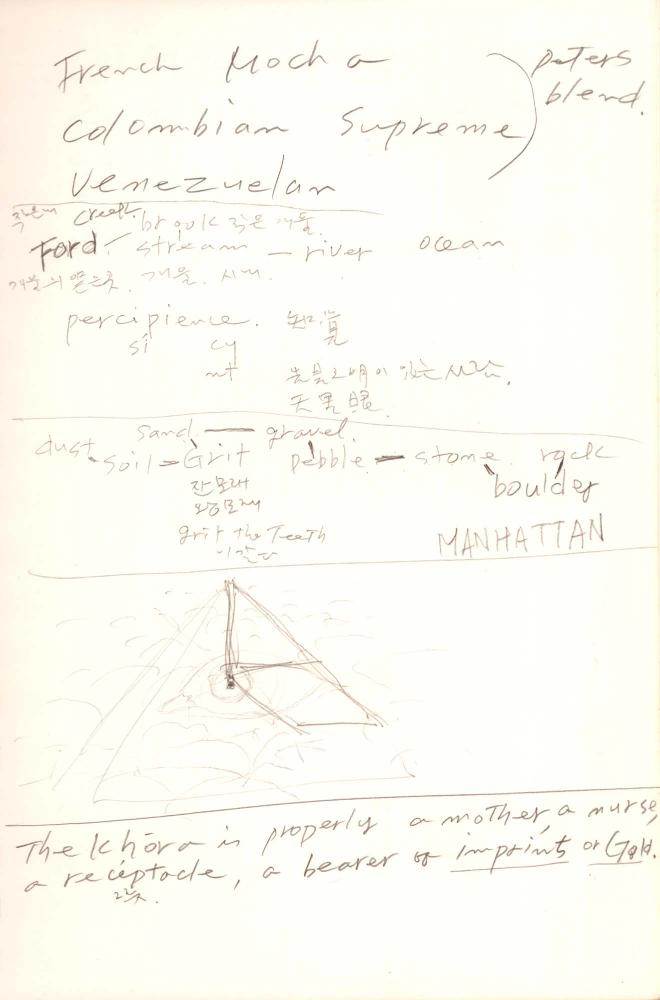 French Mocha
Colombian Supreme
Venezuelan
peters
blend.
creek. brook 작은 개울.
Ford. stream — river ocean
개울의 얕은곳. 개울. 시내.
percipience. 知覚
si cy
nt
天黑眼
sand — gravel.
dust soil Grit pebble — stone rock
boulder
잔모래
왕모래
grit the Teeth
이갈다
MANHATTAN
The Khōra is properly a mother, a nurse,
a receptacle, a bearer of imprints or Gold.
그릇.